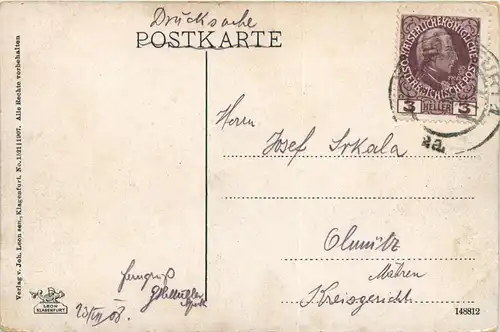 Drucksache
POSTKARTE
KAISERLICHE KÖNIGLICHE
ÖSTERREICHISCHE POST
3 HELLER 3
2a.
Herrn
Josef Srkala
Olmütz
Mähren
Kreisgericht
Ferngruß
Verlag v. Joh. Leon sen., Klagenfurt. No. 1521 | 1907. Alle Rechte vorbehalten
LEON
KLAGENFURT
148812